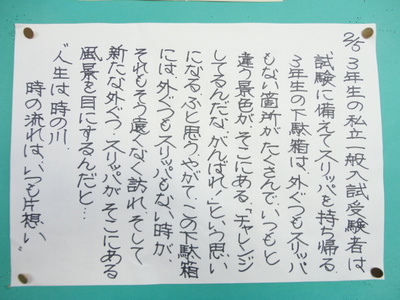 2/5 3年生の私立一般入試受験者は
試験に備えてスリッパを持ち帰る
3年生の下駄箱は、外ぐつもスリッパ
もない箇所がたくさんで、いつもと
違う景色がそこにある。「チャレンジ
してるんだな、がんばれ。」という思い
になる。ふと思うやがて、この下駄箱
には、外ぐつもスリッパもない時が
それもそう遠くなく訪れ、そして
新たな外ぐつ・スリッパがそこにある
風景を目にするんだと…
“人生は、時の川、
時の流れは、いつも片想い〟